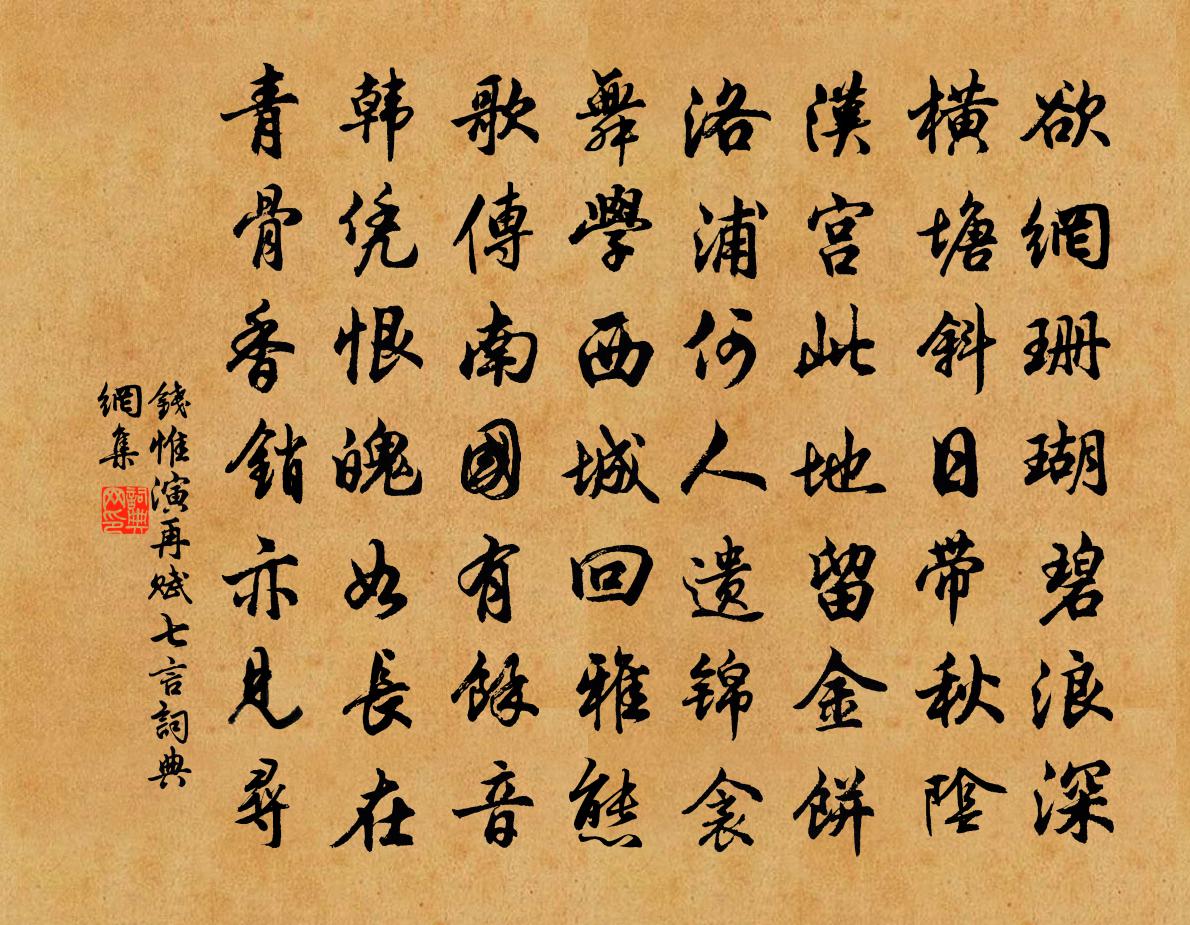 欲網珊瑚碧浪深
橫塘斜日帶秋陰
漢宮此地留金餅
洛浦何人遺錦衾
舞學西城回雅態
歌傳南國有餘音
韩凭恨魄如長在
青骨香銷亦見尋
錢惟演再赋七言詞典
網集
詞典
网印